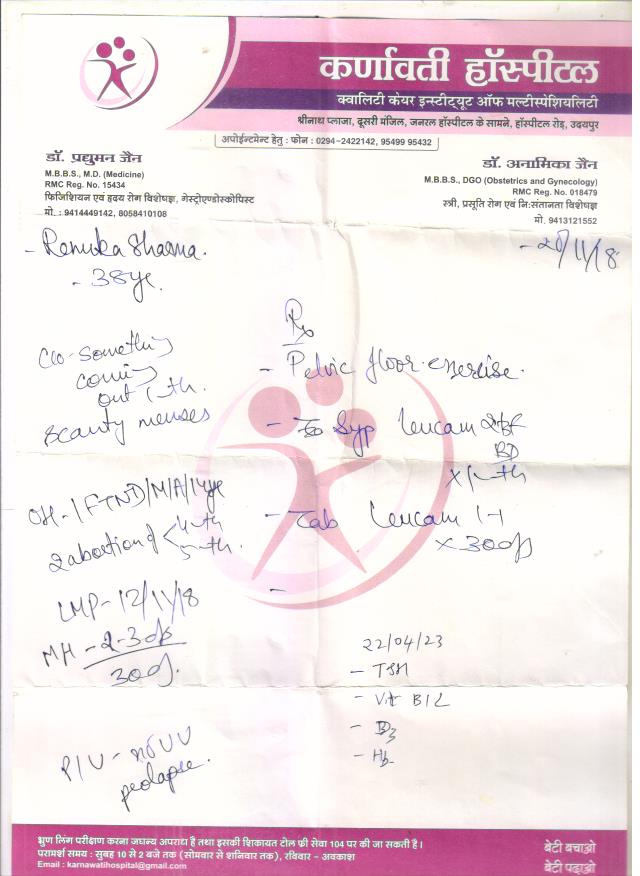 कर्णावती हॉस्पीटल
क्वालिटी केयर इन्स्टीट्यूट ऑफ मल्टीस्पेशियलिटी
श्रीनाथ प्लाजा, दूसरी मंजिल, जनरल हॉस्पीटल के सामने, हॉस्पीटल रोड़, उदयपुर
अपोईन्टमेन्ट हेतु : फोन : 0294-2422142, 95499 95432
डॉ. प्रद्युमन जैन
M.B.B.S., M.D. (Medicine)
RMC Reg. No. 15434
फिजिशियन एवं हृदय रोग विशेषज्ञ, गेस्ट्रोएण्डोस्कोपिस्ट
मो. : 9414449142, 8058410108
डॉ. अनामिका जैन
M.B.B.S., DGO (Obstetrics and Gynecology)
RMC Reg. No. 018479
स्त्री, प्रसूति रोग एवं नि:संतानता विशेषज्ञ
मो. 9413121552
- Renuka Sharma.
- 38yr.
- 20/11/18
C/o - something
coming
out 1 mth.
scanty menses
OH - 1 FTND/M/A/14yr
2 abortion of 4 mth
5 mth.
LMP - 12/11/18
MH - 2-3 d
30 d.
P/V - no UV
prolapse.
Rx
- Pelvic floor exercise.
- Syp Leucam
BD
x 1 mth
- Tab Leucam 1-1
x 30 d
-
22/04/23
- TSH
- Vit B12
- D3
- Hb
भ्रुण लिंग परीक्षण करना जघन्य अपराध है तथा इसकी शिकायत टोल फ्री सेवा 104 पर की जा सकती है।
परामर्श समय : सुबह 10 से 2 बजे तक (सोमवार से शनिवार तक), रविवार - अवकाश
Email : karnawatihospital@gmail.com
बेटी बचाओ
बेटी पढ़ाओ